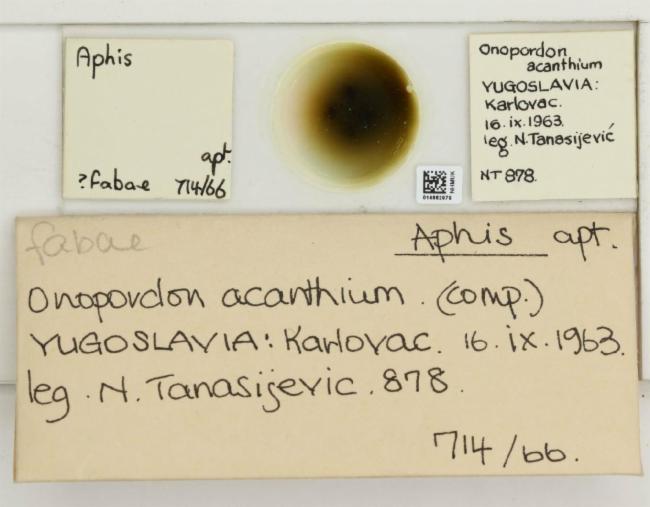 Aphis
apt.
?fabae 714/66
Onopordon
acanthium
YUGOSLAVIA:
Karlovac.
16.ix.1963.
leg. N. Tanasijević
NT 878.
NHMUK
fabae
Aphis apt.
Onopordon acanthium. (comp.)
YUGOSLAVIA: Karlovac. 16.ix.1963.
leg. N. Tanasijevic. 878.
714/66.